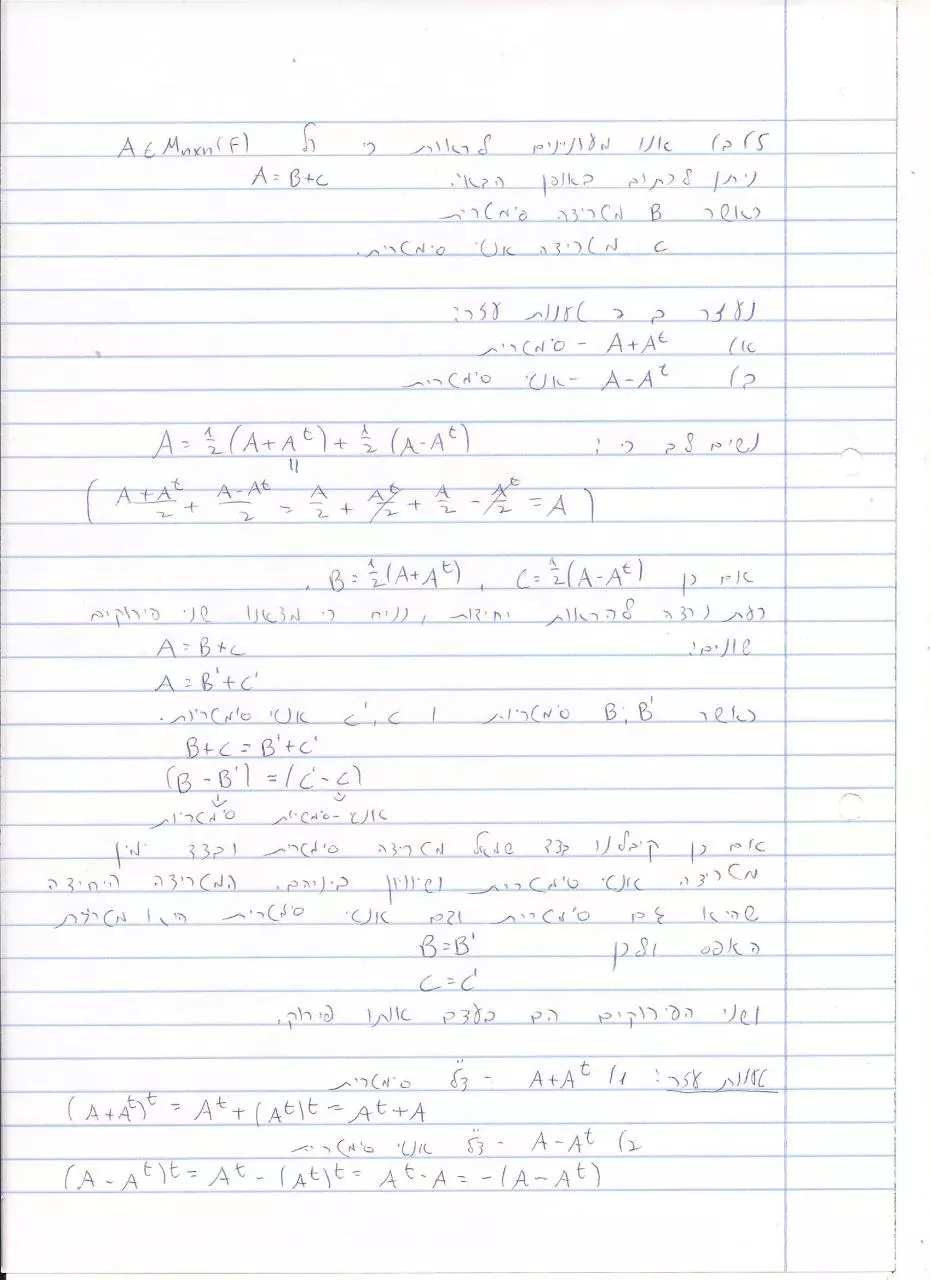 2) ב) אנו מעוניינים לראות כי לכל A ∈ Mnxn(F)
ניתן לכתוב באופן הבא: A = B+C
כאשר B מטריצה סימטרית
C מטריצה אנטי סימטרית.
נעזר ב 2 טענות עזר:
א) A+A^t - סימטרית
ב) A-A^t - אנטי סימטרית
נשים לב כי: A = 1/2 (A+A^t) + 1/2 (A-A^t)
=
( (A+A^t)/2 + (A-A^t)/2 = A/2 + A^t/2 + A/2 - A^t/2 = A )
אם כן B = 1/2(A+A^t) , C = 1/2(A-A^t) .
כעת נרצה להראות יחידות, נניח כי מצאנו שני פירוקים
שונים: A = B+C
A = B'+C'
כאשר B, B' סימטריות ו C, C' אנטי סימטריות.
B+C = B'+C'
(B-B') = (C'-C)
סימטריות אנטי-סימטריות
אם כן קיבלנו בצד שמאל מטריצה סימטרית ובצד ימין
מטריצה אנטי סימטרית ושיוויון ביניהם. המטריצה היחידה
שהיא גם סימטרית וגם אנטי סימטרית היא מטריצת
האפס ולכן B=B'
C=C'
ושני הפירוקים הם בעצם אותו פירוק.
טענות עזר: 1) A+A^t - צ"ל סימטרית
(A+A^t)^t = A^t + (A^t)^t = A^t + A
2) A-A^t - צ"ל אנטי סימטרית
(A-A^t)^t = A^t - (A^t)^t = A^t - A = -(A-A^t)